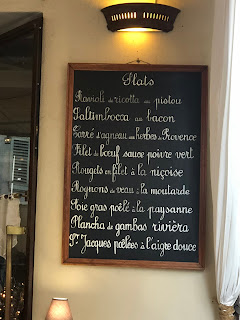 Plats
Ravioli de ricotta au pistou
Saltimbocca au bacon
Carré d'agneau aux herbes de Provence
Filet de bœuf sauce poivre vert
Rougets en filet à la niçoise
Rognons de veau à la moutarde
Foie gras poêlé à la paysanne
Plancha de gambas rivièra
St Jacques poêlées à l'aigre douce